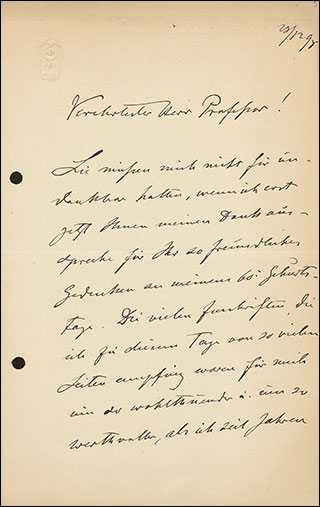 29/12 98
Verehrtester Herr Professor!
Sie müssen mich nicht für un-
dankbar halten, wenn ich erst
jetzt Ihnen meinen Dank aus-
spreche für Ihr so freundliches
Gedenken an meinem 60. Geburts-
tage. Die vielen Zuschriften, die
ich zu diesem Tage von so vielen
Seiten empfing waren für mich
um so wohlthuender u. um so
werthvoller, als ich seit Jahren